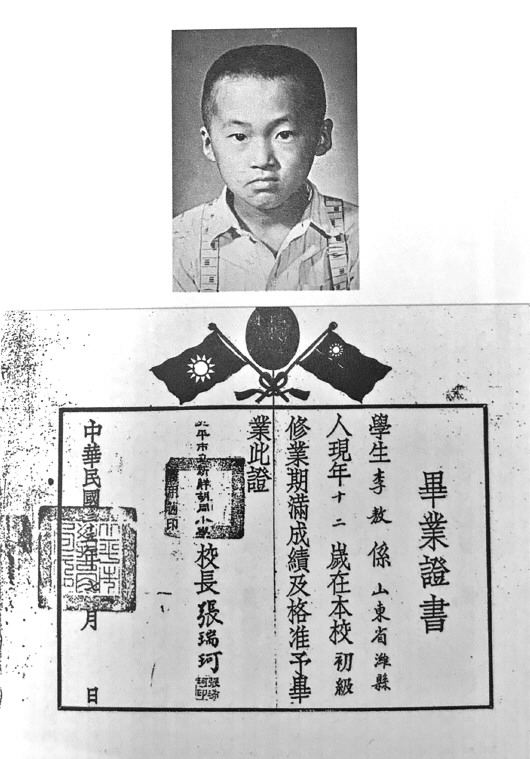 畢業證書
學生李敖係山東省濰縣
人現年十二歲在本校初級
修業期滿成績及格准予畢
業此證
平市立新鮮胡同小學校長張瑞珂
中華民國 年 月 日